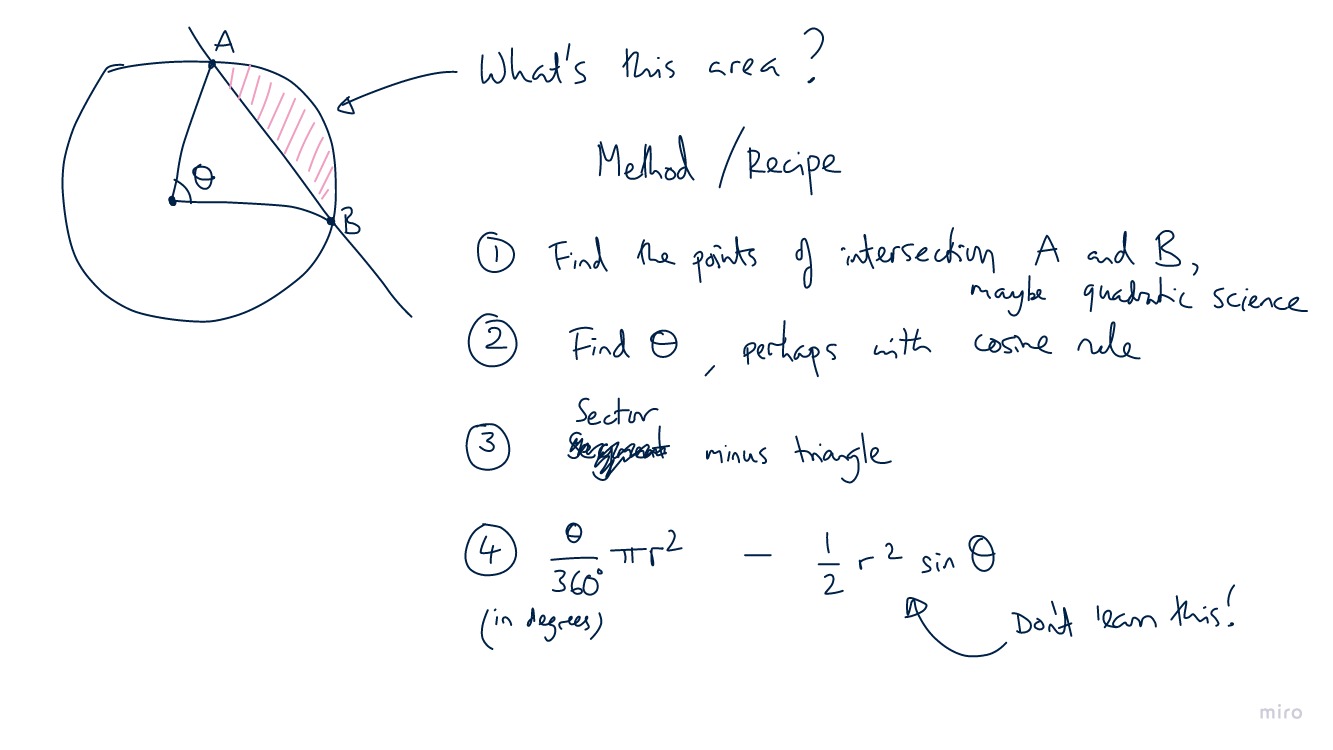 A
What's this area?
Method / Recipe
θ
B
① Find the points of intersection A and B,
maybe quadratic science
② Find θ, perhaps with cosine rule
Sector
③ minus triangle
④ θ/360° πr² — 1/2 r² sin θ
(in degrees)
Don't learn this!
miro